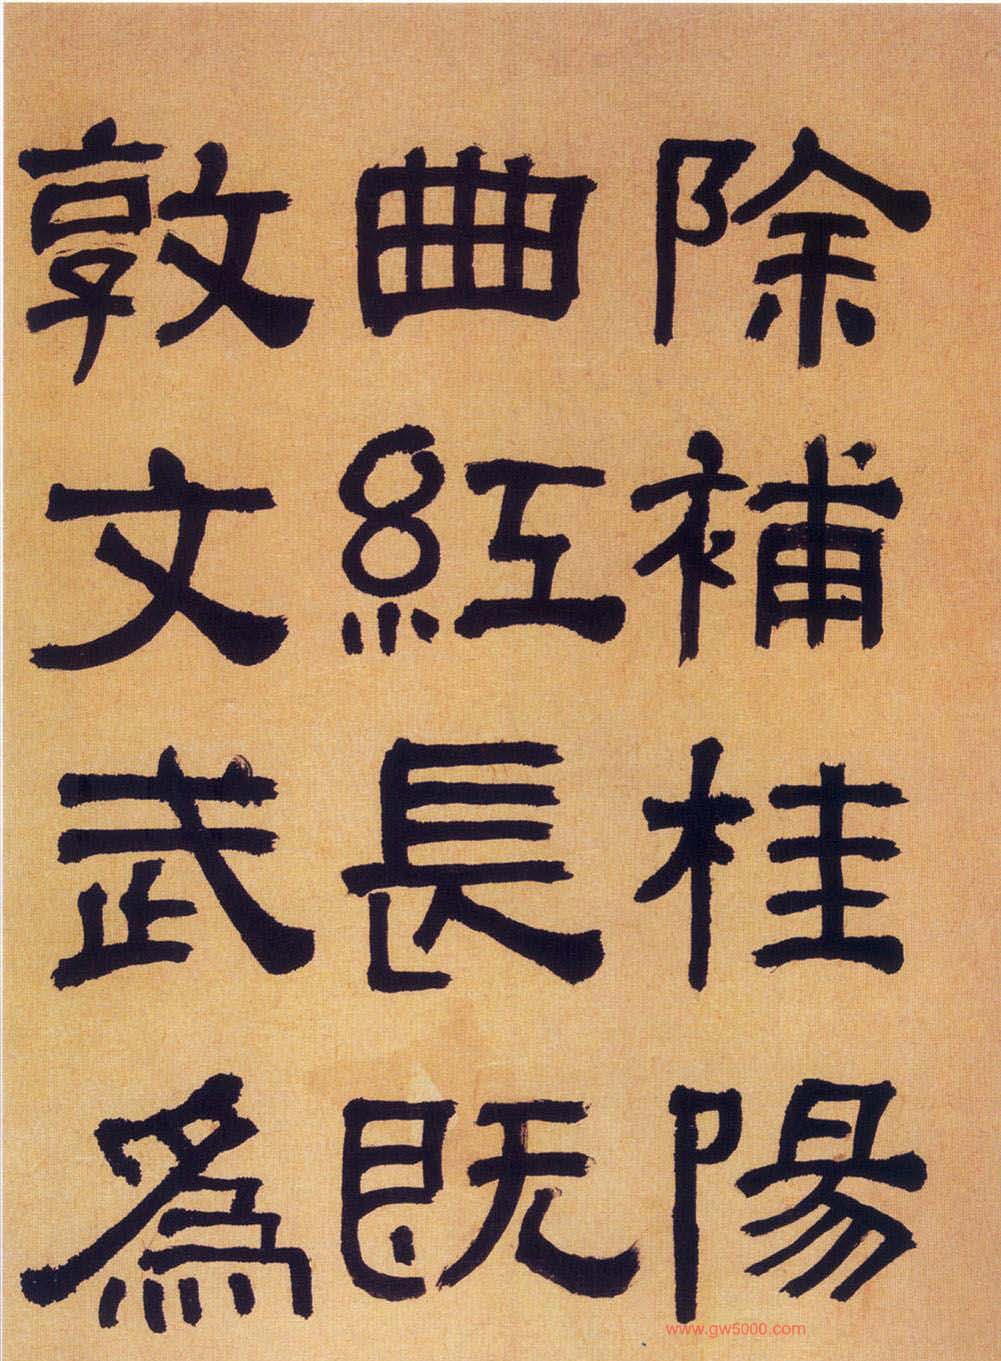 除補桂陽
曲紅長既
敦文武為
www.gw5000.com